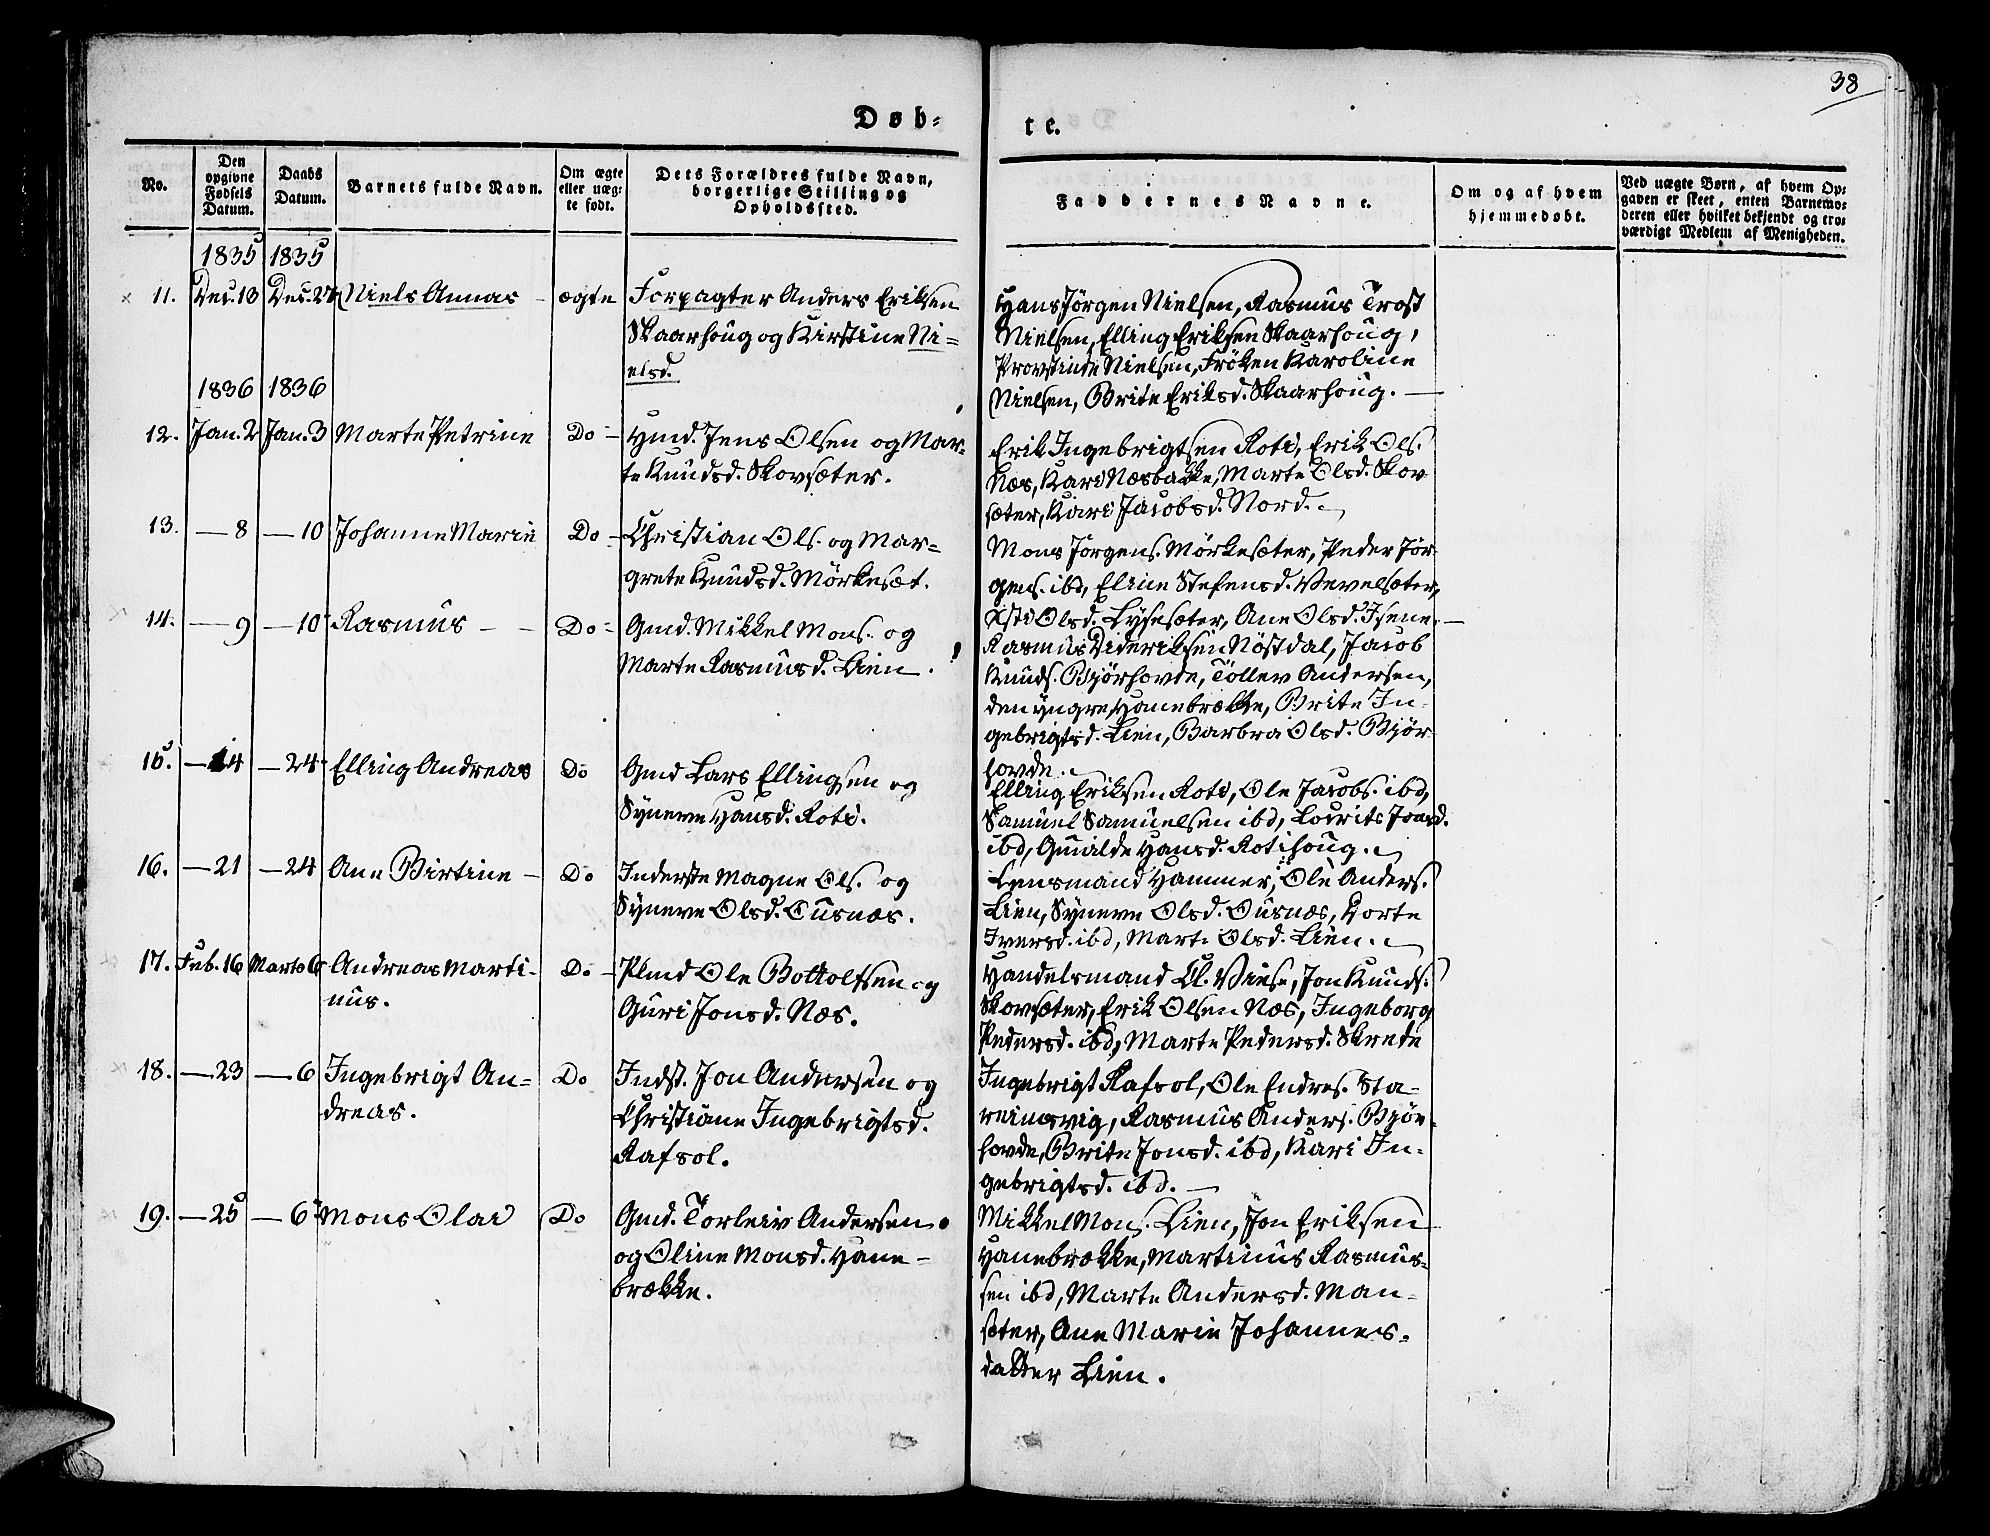 38
Døb-
te.
No.
Den opgivne Fødsels Datum.
Daabs Datum.
Barnets fulde Navn.
Om ægte eller uæg-te født.
Dets Forældres fulde Navn, borgerlige Stilling og Opholdssted.
Faddernes Navne.
Om og af hvem hjemmedøbt.
Ved uægte Børn, af hvem Op-
gaven er skeet, enten Barnemo-
deren eller hvilket bekjendt og tro-
værdigt Medlem af Menigheden.
1835 1835
11. Dec. 13 Dec. 27 Niels Annas - ægte Forpagter Anders Eriksen
Skaarhoug og Kirstine Ni-
elsd.
Hans Jörgen Nielsen, Rasmus Trost
Nielsen, Elling Eriksen Skaarhoug,
Provstinde Nielsen, Fröken Karoline
Nielsen, Brite Eriksd. Skaarhoug. —
1836 1836
12. Jan. 2 Jan. 3 Marte Petrine Do - Hmd. Jens Olsen og Mar-
te Knudsd. Skovsæter.
Erik Ingebrigtsen Roti, Erik Ols.
Næs, Kari Næsbakke, Marte Olsd. Skov
sæter, Kari Jacobsd. Nord.
13. — 8 — 10 Johanne Marie Do - Christian Ols. og Mar-
grete Knudsd. Mörkesæt.
Mons Jörgens. Mörkesæter, Peder Jör
gens. ibd, Eline Stefensd. Vevelsæter,
Olsd. Lyfesæter, Ane Olsd. Isene. —
14. — 9 — 10 Rasmus - - Do - Gmd. Mikkel Mons. og
Marte Rasmusd. Lien.
Rasmus Dideriksen Nöstdal, Jacob
Knuds. Bjørhovde, Tollev Andersen,
den yngre, Hanebrække, Brite In-
gebrigtsd. Lien, Barbra Olsd. Bjør
hovde.
15. — 14 — 24 Elling Andreas Do Gmd Lars Ellingsen og
Synneve Hansd. Roti.
Elling Eriksen Roti, Ole Jacobs. ibd,
Samuel Samuelsen ibd, Lovrits Jonsd.
ibd, Gunilde Hansd. Rotihoug.
16. — 21 — 24 Ane Birtine - Do Inderste Magne Ols. og
Syneve Olsd. Ousnæs.
Lensmand Hammer, Ole Anders.
Lien, Syneve Olsd. Ousnæs, Dorte
Iversd. ibd, Marte Olsd. Lien.
17. Feb. 16 Marts 6 Andreas Marti-
nus.
Do - Plmd Ole Bottolfsen og
Guri Jonsd. Næs.
Handelsmand Cl. Viese, Jon Knuds.
Skovsæter, Erik Olsen Næs, Ingeborg
Pedersd. ibd, Marte Pedersd. Skrede
18. — 23 — 6 Ingebrigt An-
dreas.
Do Indst. Jon Andersen og
Christiane Ingebrigtsd.
Rafsol.
Ingebrigt Rafsol, Ole Endres. Sta-
reimsvig, Rasmus Anders. Bjør-
hovde, Brite Jonsd. ibd, Kari In-
gebrigtsd. ibd. —
19. — 25 — 6 Mons Olai Do Gmd. Torleiv Andersen
og Oline Monsd. Hane-
brække.
Mikkel Mons. Lien, Jon Eriksen
Hanebrække, Martinus Rasmus-
sen ibd, Marte Andersd. Man-
sæter, Ane Marie Johannes-
datter Lien.